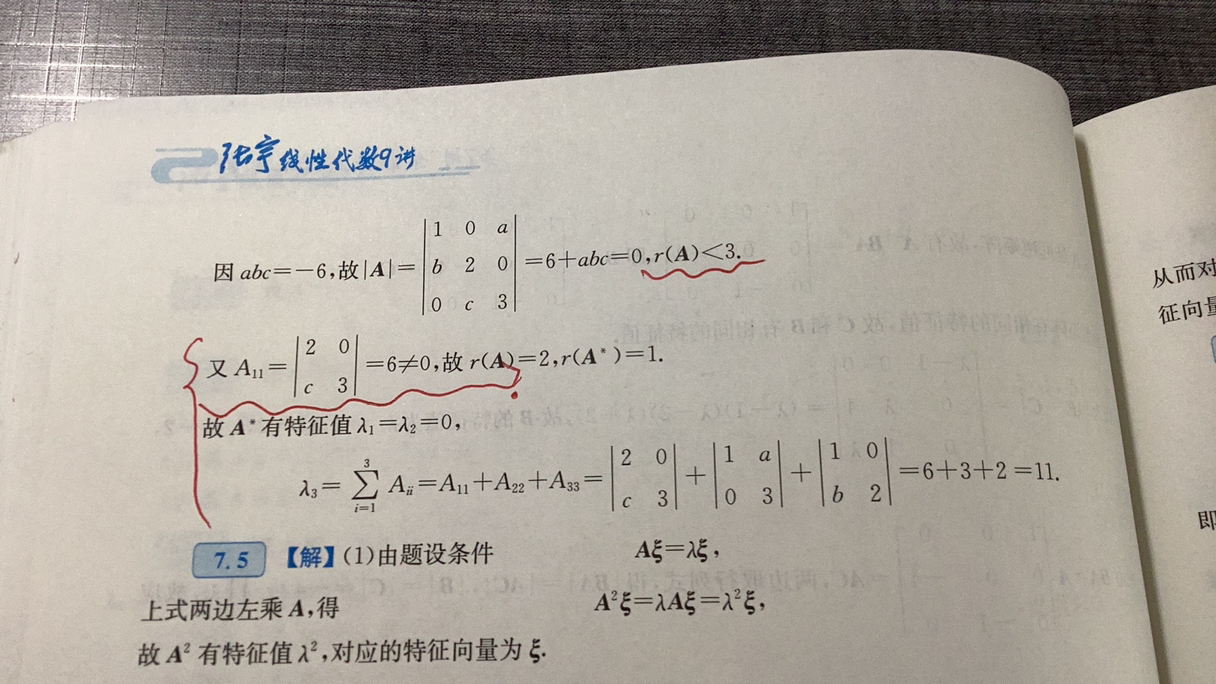 张宇线性代数9讲
因 abc=-6,故|A|=|1 0 a; b 2 0; 0 c 3|=6+abc=0,r(A)<3.
又 A₁₁=|2 0; c 3|=6≠0,故 r(A)=2,r(A*)=1.
故 A* 有特征值 λ₁=λ₂=0,
λ₃=∑ᵢ₌₁³ Aᵢᵢ=A₁₁+A₂₂+A₃₃=|2 0; c 3|+|1 a; 0 3|+|1 0; b 2|=6+3+2=11.
7.5 【解】(1)由题设条件 Aξ=λξ,
上式两边左乘 A,得 A²ξ=λAξ=λ²ξ,
故 A² 有特征值 λ²,对应的特征向量为 ξ.
从而对
征向量
即